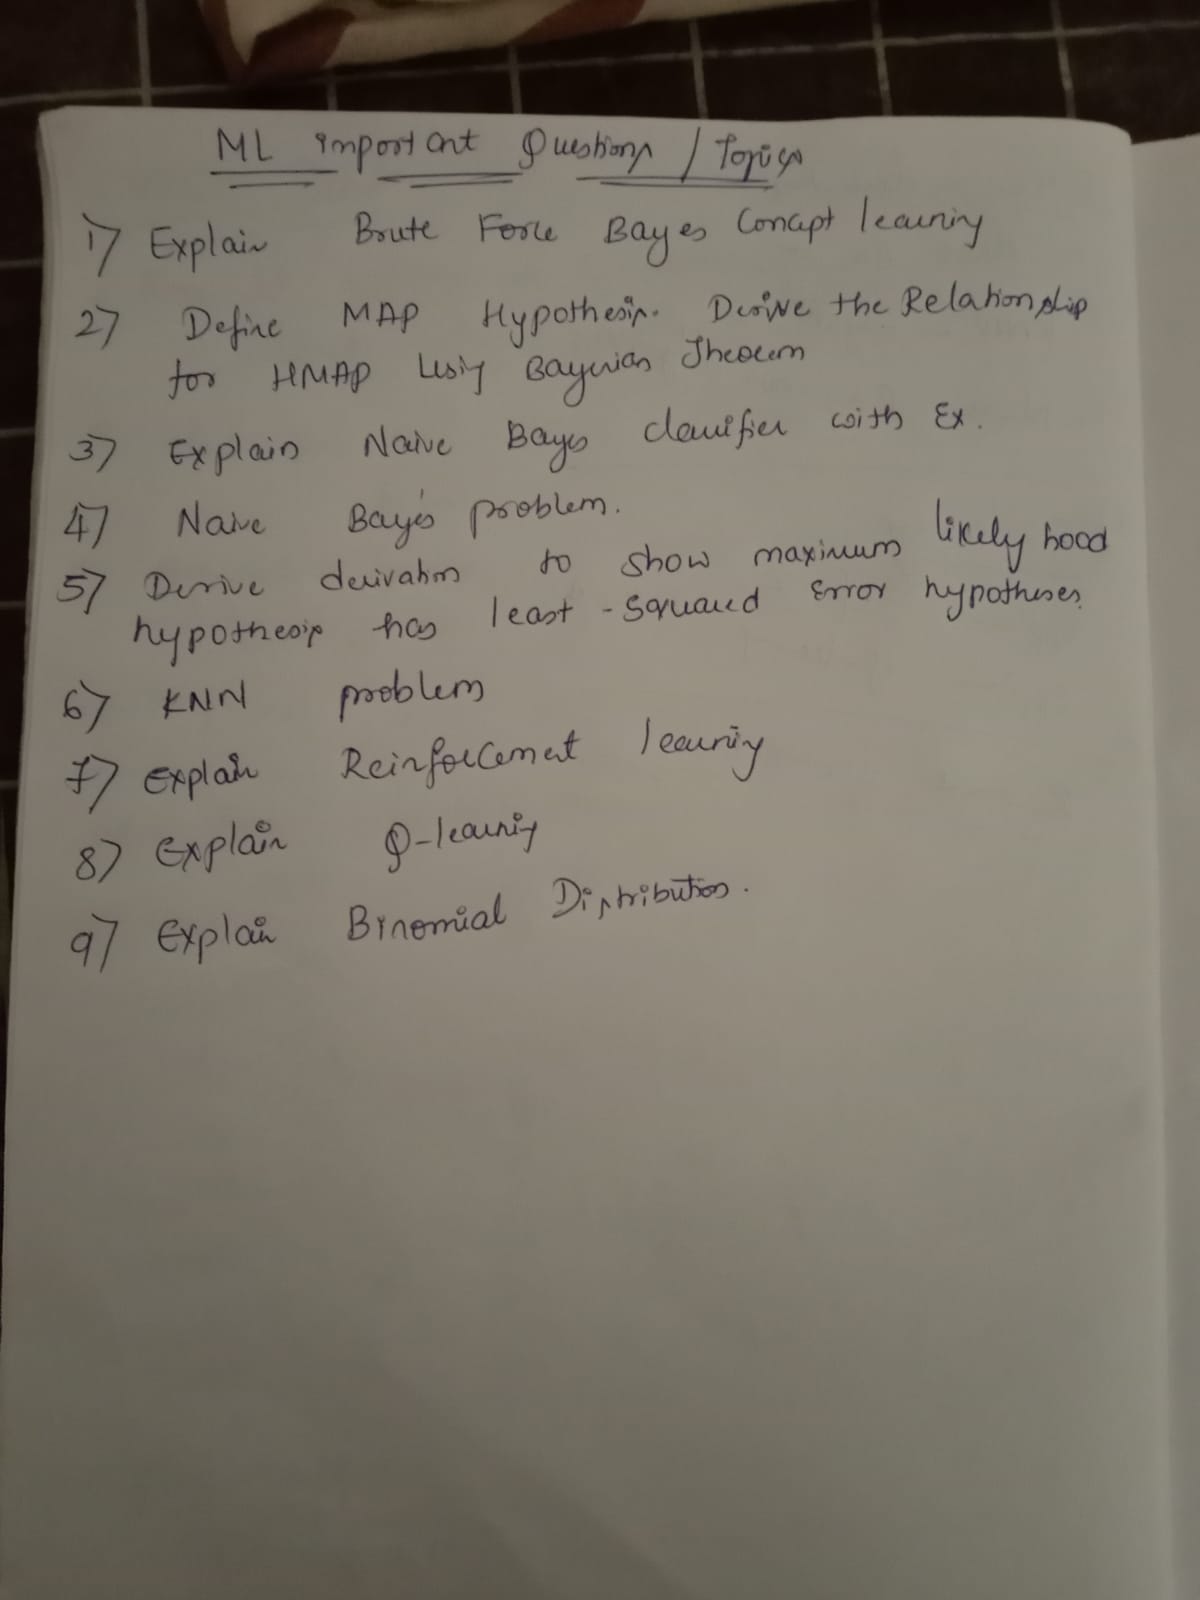 ML important Questions / Topics
1) Explain Brute Force Bayes Concept learning
2) Define MAP Hypothesis. Derive the Relationship
for HMAP Using Bayesian Theorem
3) Explain Naive Bayes classifier with Ex.
4) Naive Baye's problem.
5) Derive derivation to show maximum likely hood
hypothesis has least - squared error hypotheses.
6) KNN problem
7) Explain Reinforcement learning
8) Explain Q-learning
9) Explain Binomial Distribution.